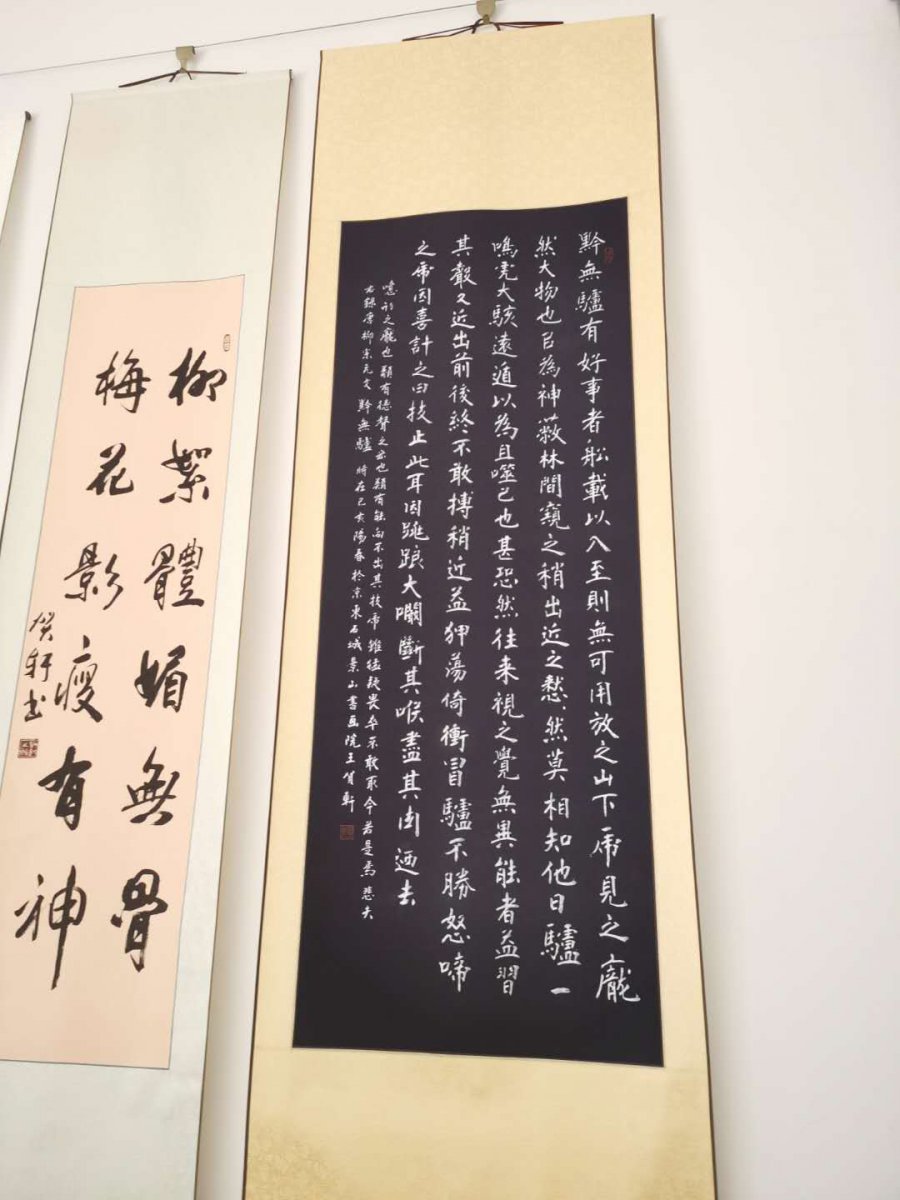 黔無驢有好事者舩載以入至則無可用放之山下虎見之龐
然大物也以為神蔽林間窺之稍出近之憖然莫相知他日驢一
鳴虎大駭遠遁以為且噬己也甚恐然往来視之覺無異能者益習
其聲又近出前後終不敢搏稍近益狎蕩倚衝冒驢不勝怒啼
之虎因喜計之曰技止此耳因跳踉大㘚斷其喉盡其肉迺去
噫形之龐也類有德聲之宏也類有能向不出其技虎雖猛疑畏卒不敢取今若是焉悲夫
右録唐柳宗元文黔無驢 時在己亥陽春於京東石城景山書画院王賀軒
柳絮體媚無骨
梅花影瘦有神
賀軒书